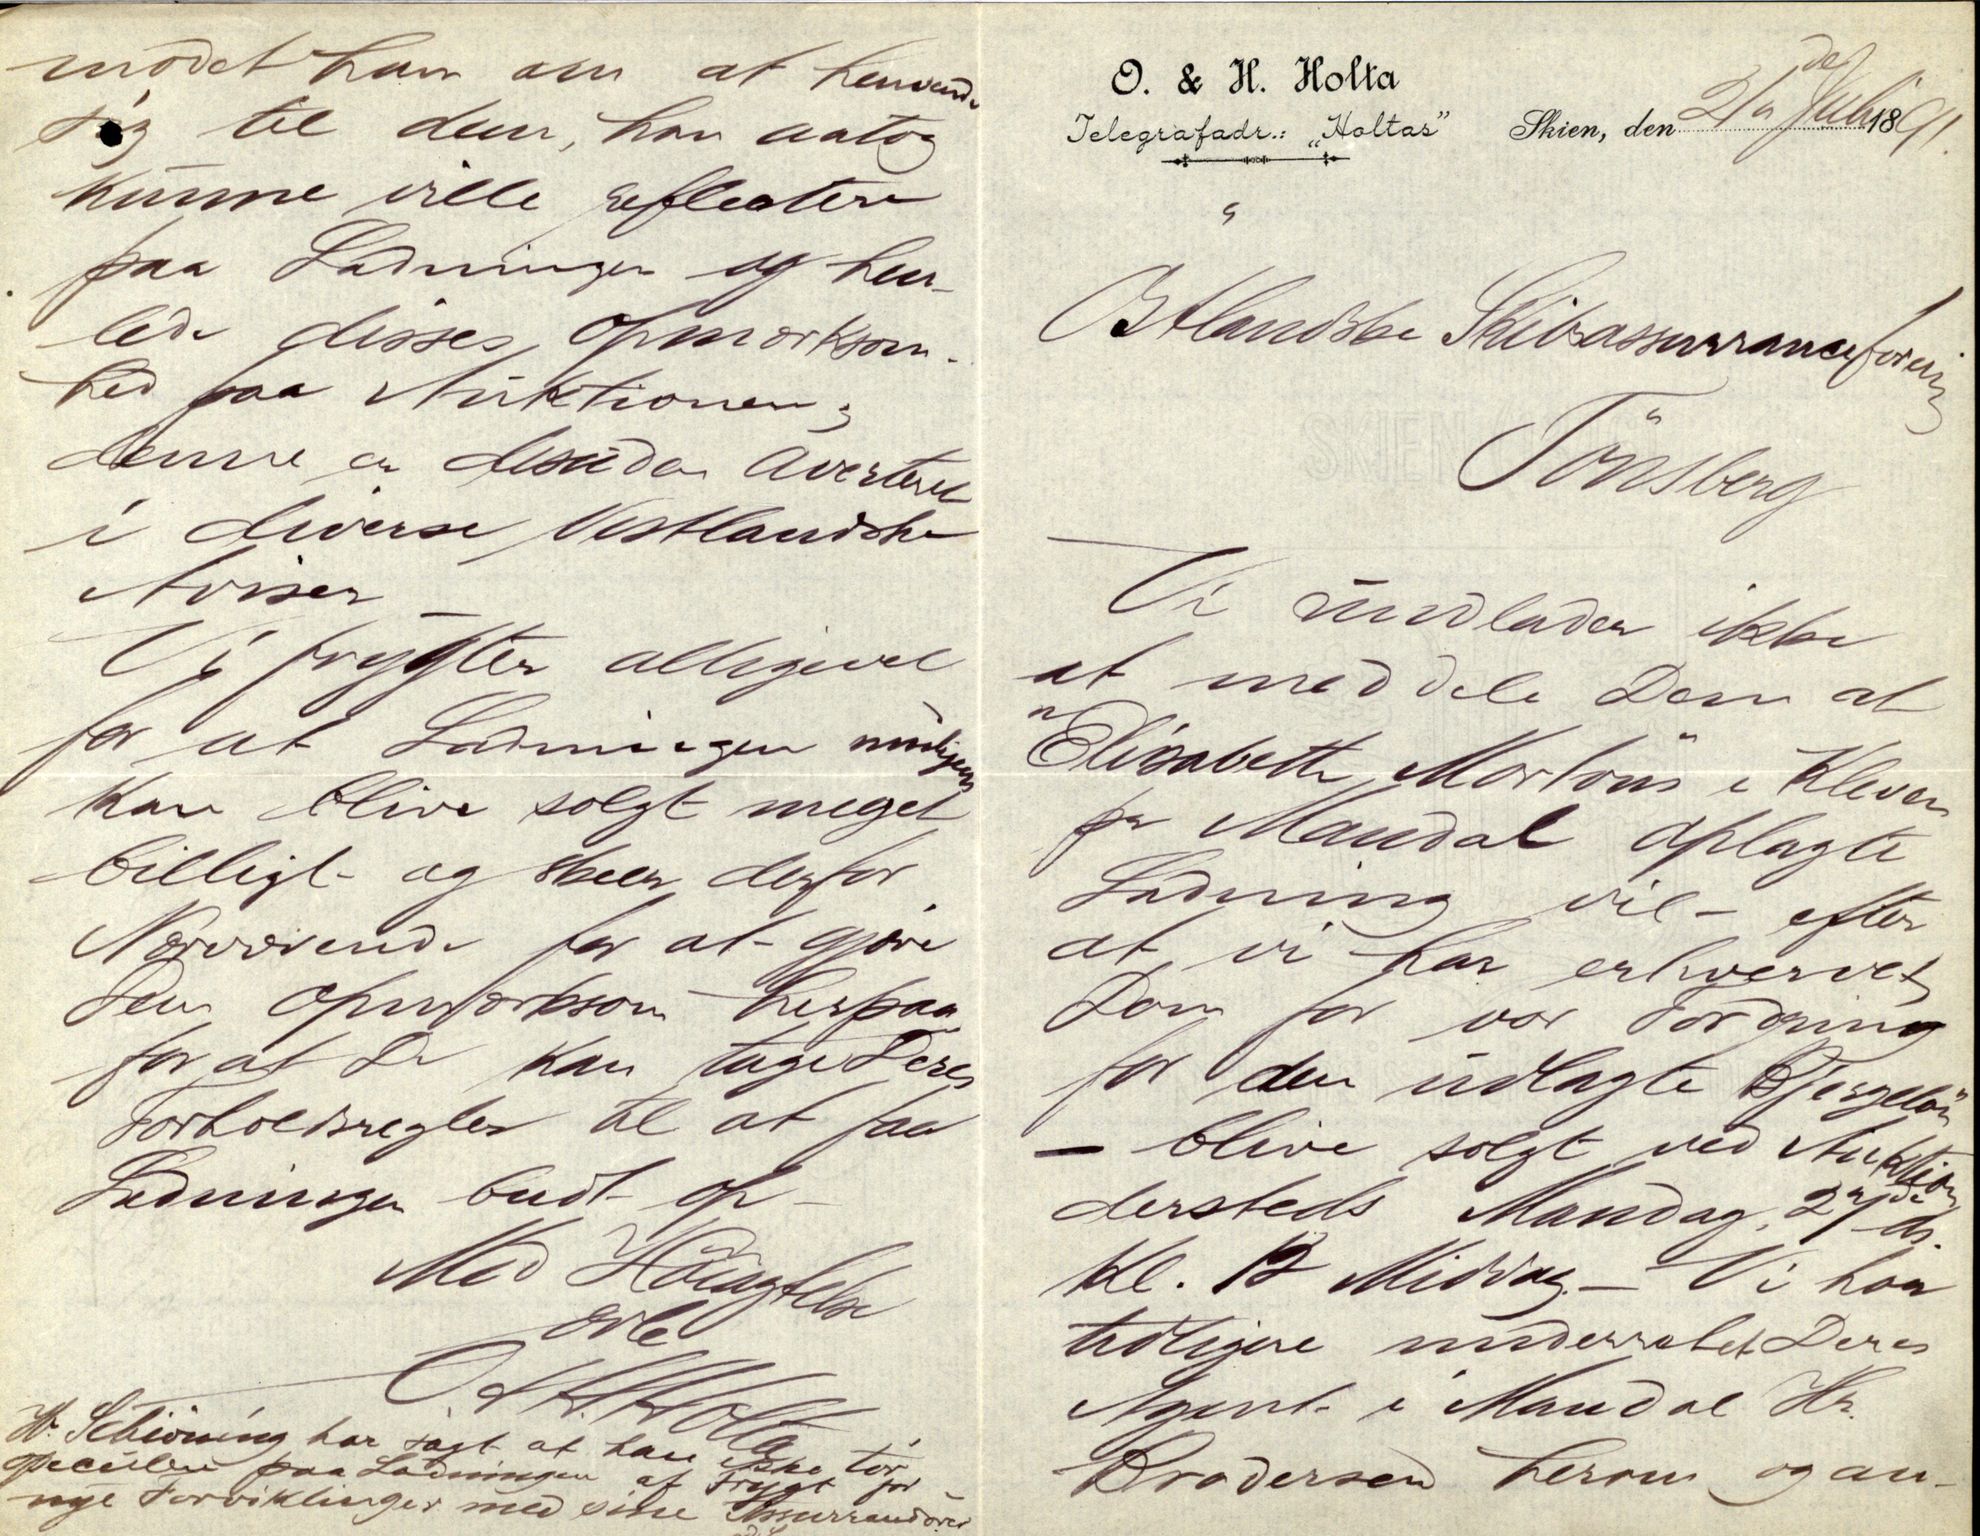 O. & H. Holta
Telegrafadr.: „Holtas"
Skien, den 21de Juli 1891.
Østlandske Skibsassurranceforening
Tönsberg
Vi undlader ikke
at meddele Dem at
"Elisabeth Mortons" i Kleven
pr Mandal oplagte
Ladning vil – efter
at vi har erhvervet
Dom for vor Fordring
for den udlagte Bjergelön
– blive solgt ved Auktion
dersteds Mandag, 27de ds.
Kl. 12 Middag. – Vi har
tidligere underrettet Deres
Agent i Mandal Hr.
Brodersen herom og an-
modet ham om at henvende
sig til dem, han antog
kunne ville reflectere
paa Ladningen og hen-
lede disses opmærksom-
hed paa Auktionen;
denne er desuden averteret
i diverse Vestlandske
Aviser –
Vi frygter alligevel
for at Ladningen muligens
kan blive solgt meget
billigt og skeer derfor
Nærværende for at gjøre
Dem opmærksom herpaa
for at De kan tage Deres
Forholdsregler til at faa
Ladningen budt op –
Med Høiagtelse
O & H Holta
Hr. Schiøning har sagt at han ikke tør
speculere paa Ladningen af Frygt for
nye Forviklinger med sine Assurrandører